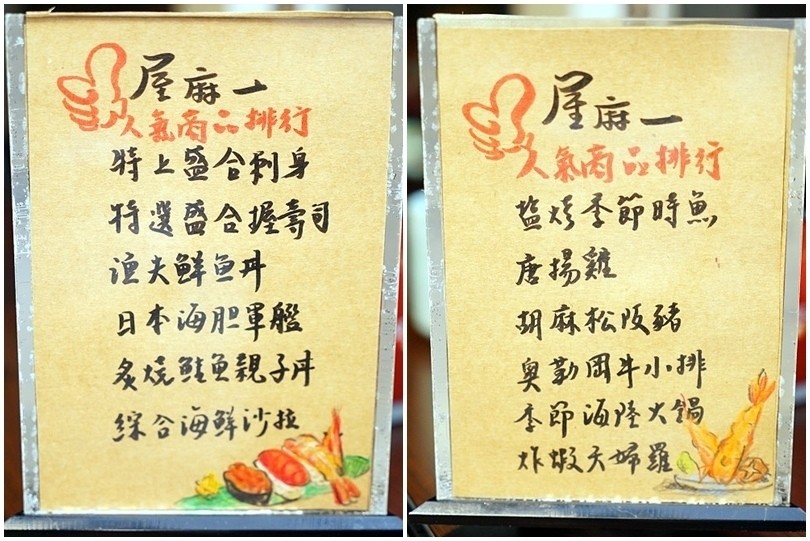 屋麻一
人氣商品排行
特上盛合刺身
特選盛合握壽司
漁夫鮮魚丼
日本海胆軍艦
炙燒鮭魚親子丼
綜合海鮮沙拉
屋麻一
人氣商品排行
塩烤季節時魚
唐揚雞
胡麻松阪豬
奧勒岡牛小排
季節海陸火鍋
炸蝦天婦羅